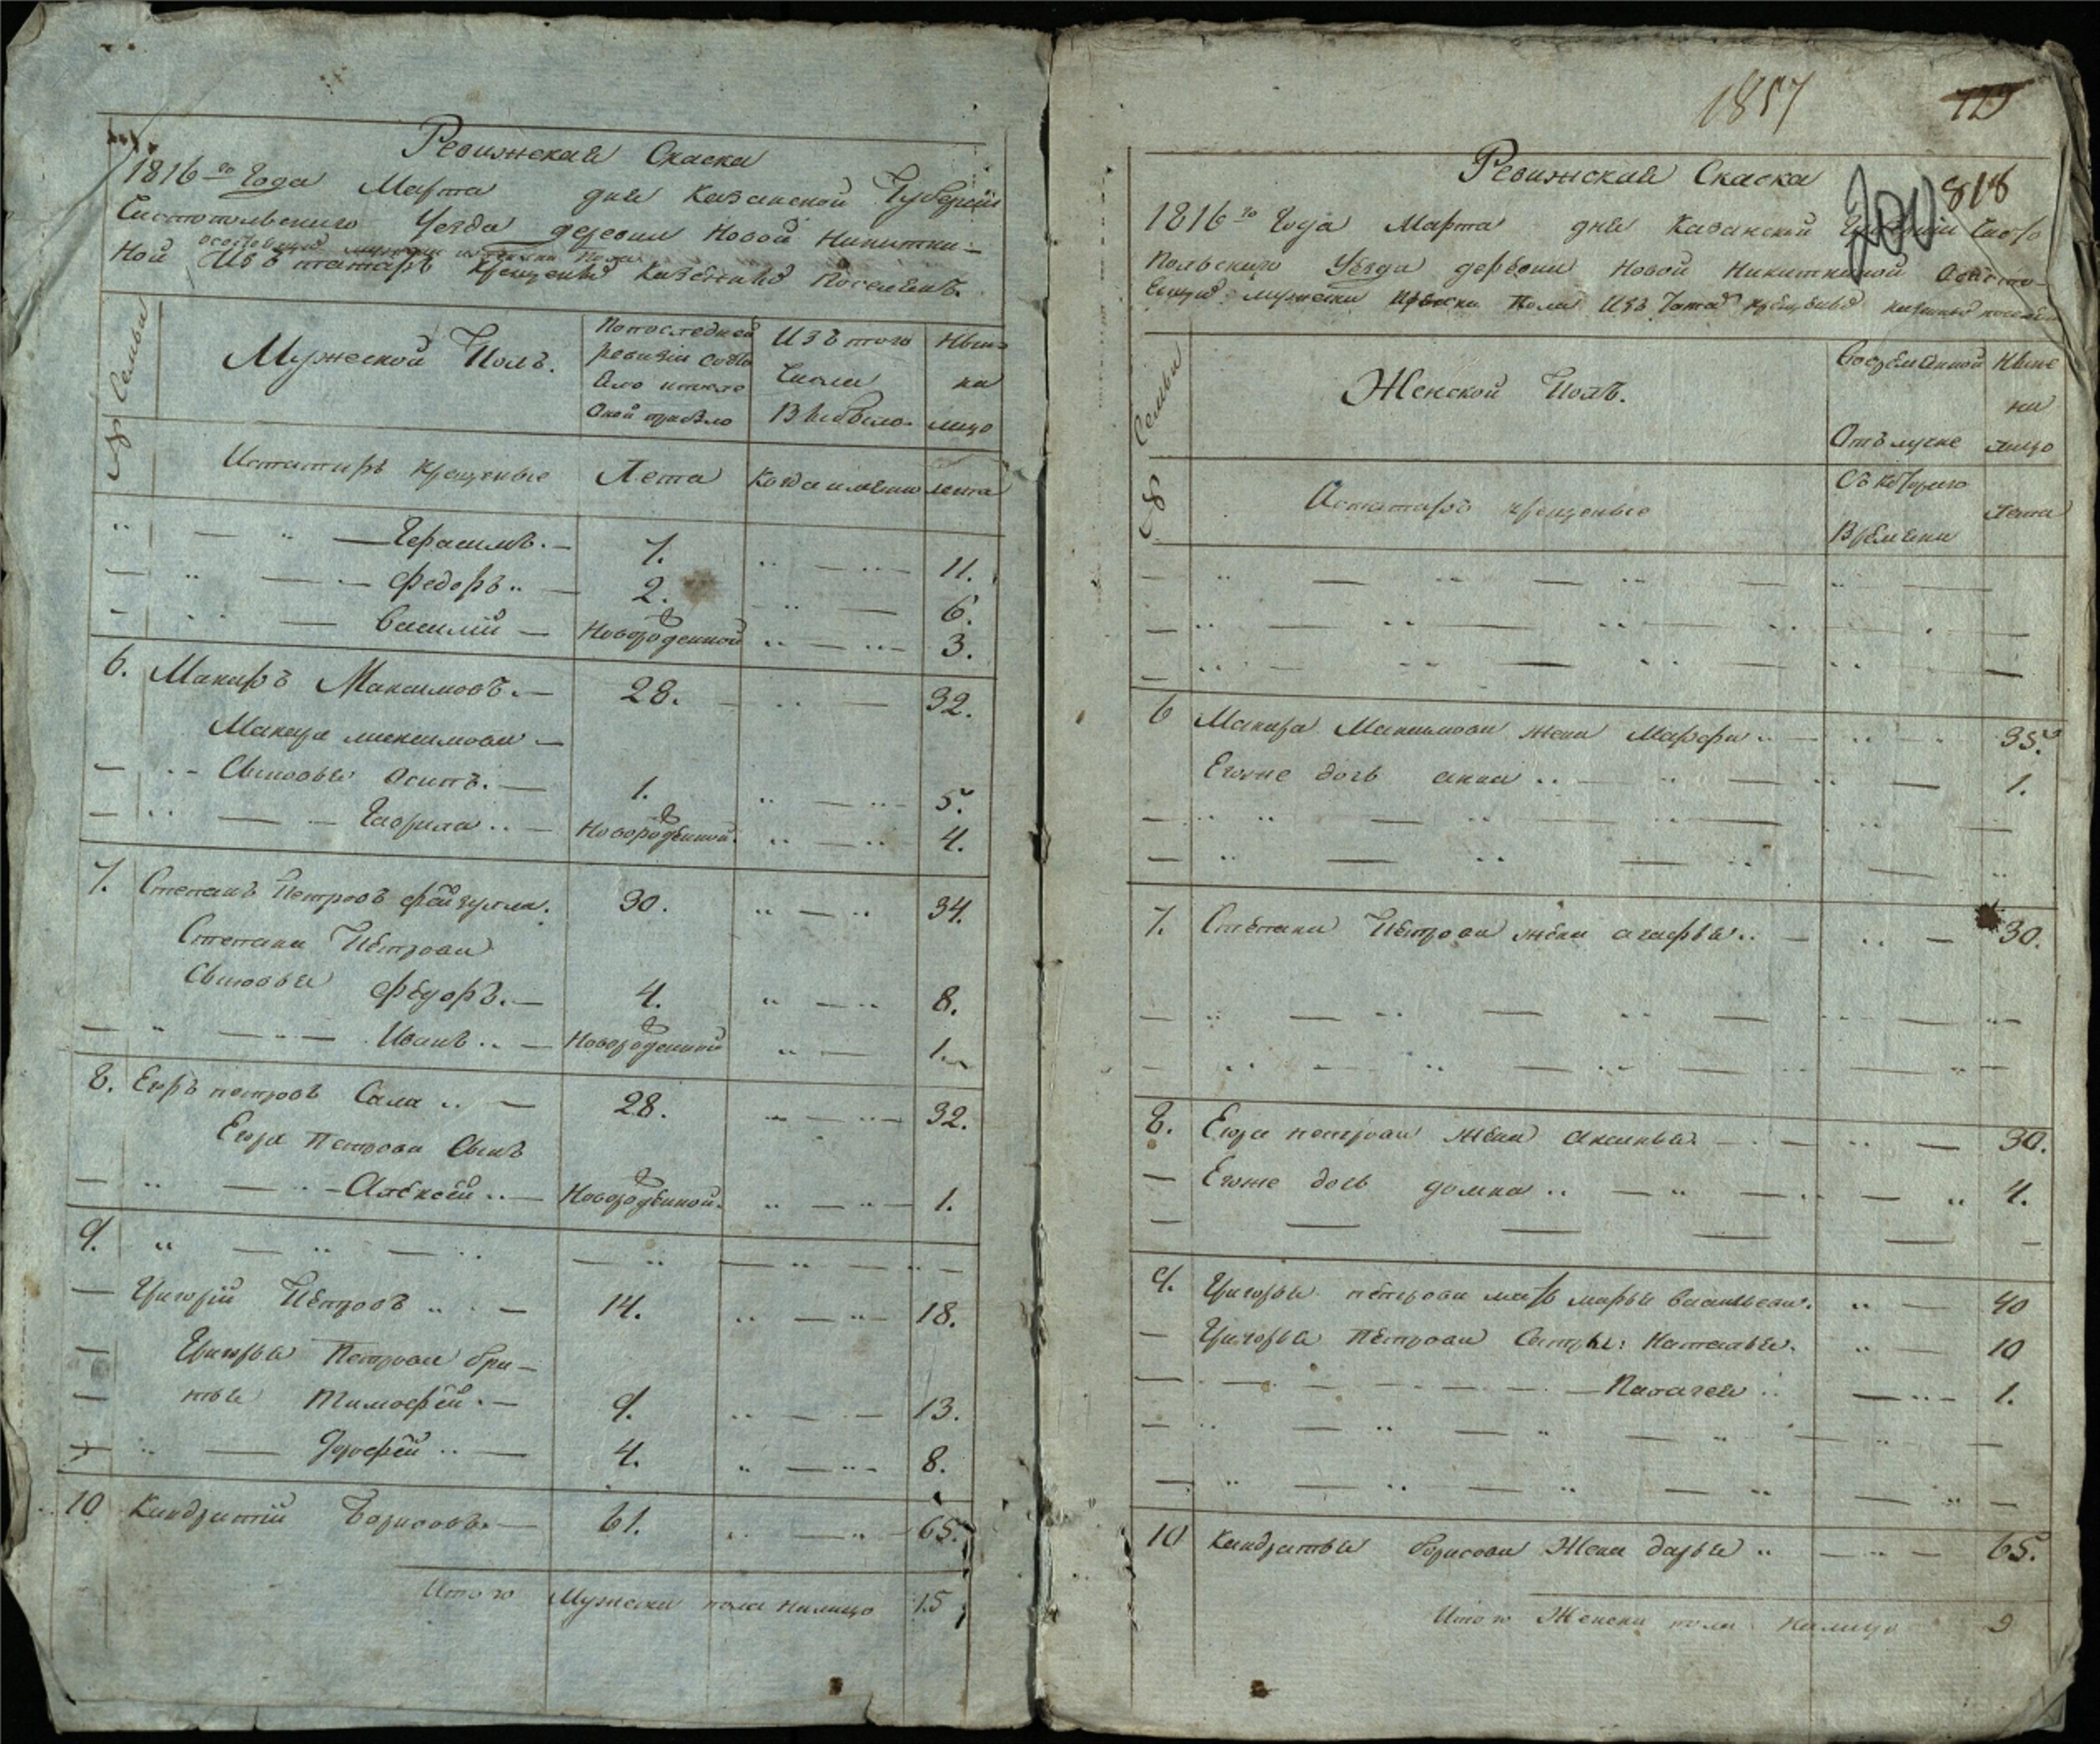 Ревижская Скаска
1816го Года Марта дня Казанской Губернии
Чистопольского Уезда деревни Новой Никитки-
состоящих мужеска и женска пола
ной Изъ татаръ крещеныхъ казенныхъ поселянъ.
№ Семьи
Мужеской Полъ.
Попоследней ревизии состо яло ипосле Оной прибыло
Изъ того Числа Выбыло
Ныне на лицо
Истатаръ крещеные Лета Когда имянно лета
Герасимъ. 7. 11.
Федоръ 2. 6.
Василий Новорожденной 3.
6. Макаръ Максимовъ. 28. 32.
Макара максимова
Сыновья Осипъ. 1. 5.
Гаврила Новорожденной. 4.
7. Степанъ Петровъ Файзулла. 30. 34.
Степана Петрова
Сыновья Федоръ. 4. 8.
Иванъ Новорожденной 1.
8. Егоръ петровъ Сала 28. 32.
Егора Петрова Сынъ
Алексей Новорожденной. 1.
9.
Григорий Петровъ 14. 18.
Григорья Петрова бра-
тья Тимофей. 9. 13.
Ерофей 4. 8.
10 Кандратий Борисовъ 61. 65.
Итого Мужеска пола налицо 15
1857
818
200
Ревижская Скаска
1816го Года Марта дня Казанской Губернии Чисто
Польского Уезда деревни Новой Никиткиной Состо-
ящихъ мужеска женска Пола Изъ Татаръ крещеныхъ казенныхъ поселянъ
№ Семьи
Женской Полъ.
Во временной Отълучке
Ныне на лицо
Истатаръ крещеные
Съ которого Времени
лета
6 Макара Максимова жена Марфа 35.
Егоже дочь анна 1.
7. Степана Петрова жена агафья 30.
8. Егора петрова жена аксинья. 30.
Егоже дочь домна 4.
9. Григорья петрова мать марья васильева. 40
Григорья Петрова Сестры: Наталья. 10
Палагея 1.
10 Кандратья борисова Жена дарья 65.
Итого Женска пола налицо 9